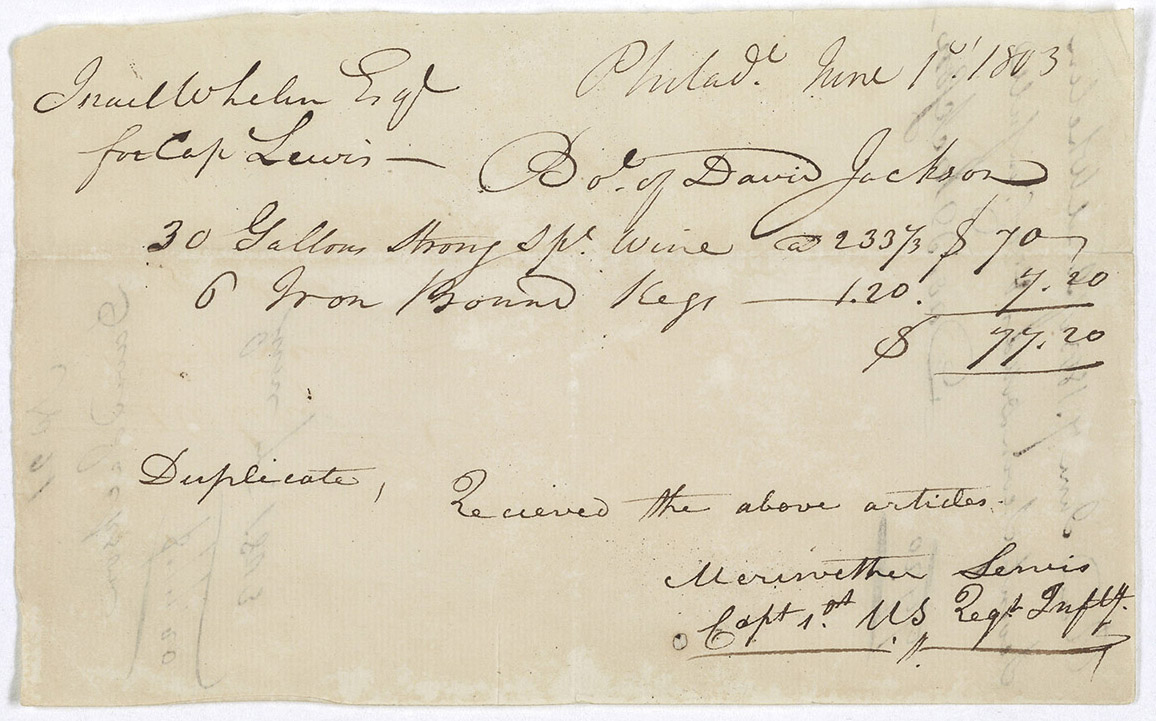 Israel Whelen Esqr Philada. June 1st. 1803
for Cap Lewis —
Bot. of David Jackson
30 Gallons Strong Spt. Wine @ 233⅓ $ 70
6 Iron Bound Kegs — 1.20. 7.20
$ 77.20
Duplicate, Recieved the above articles.
Meriwether Lewis
Capt 1.st US Regt. Infty.